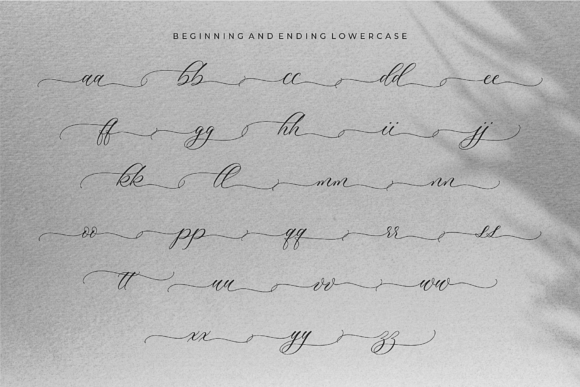 BEGINNING AND ENDING LOWERCASE
aa bb cc dd ee
ff gg hh ii jj
kk ll mm nn
oo pp qq rr ss
tt uu vv ww
xx yy zz